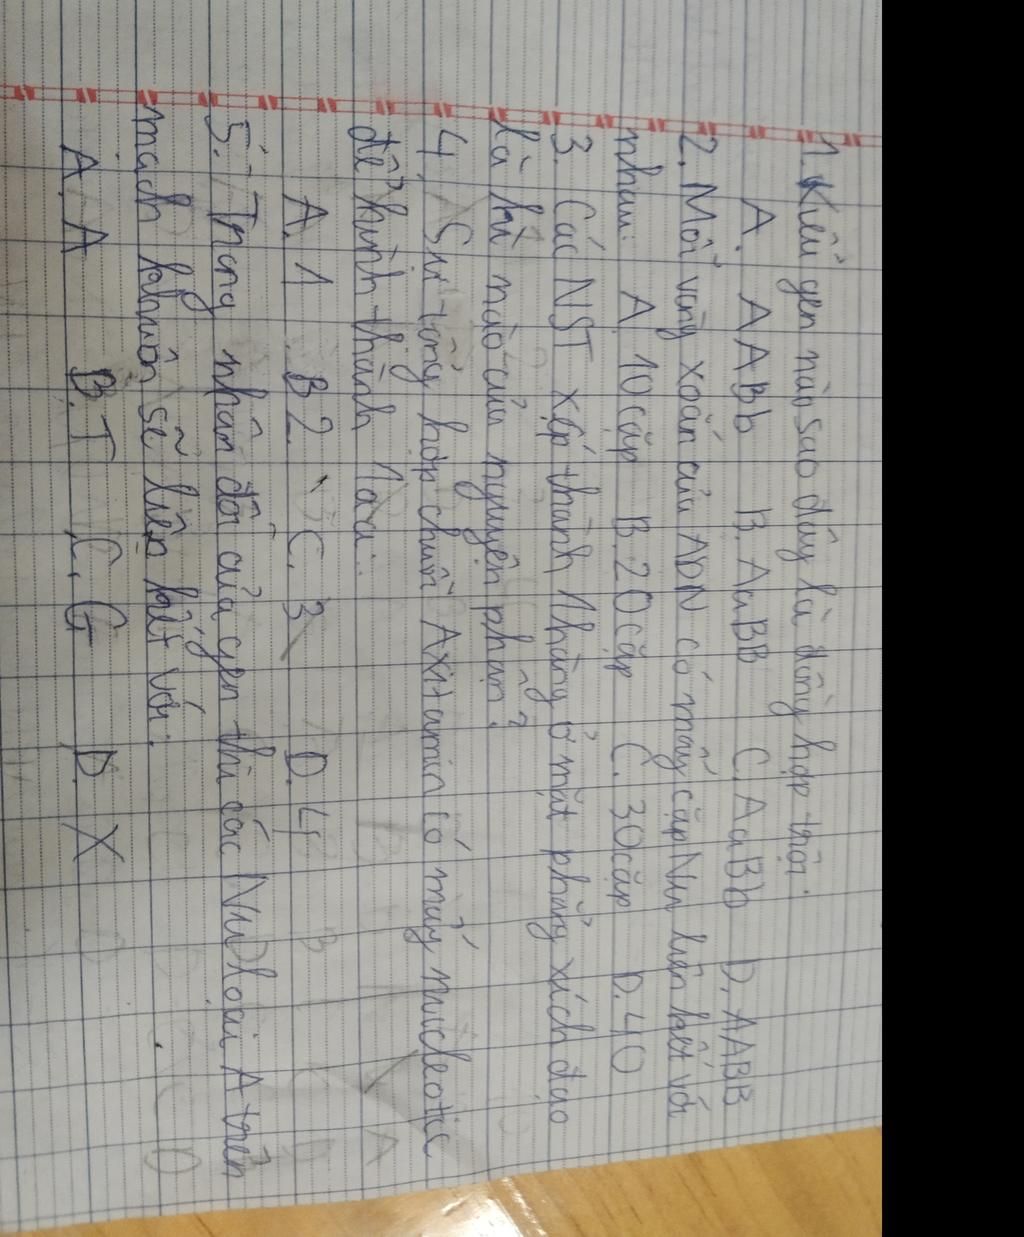 1. Kiểu gen nào sao đây là đồng hợp trội:
A. AABb B. AaBB C. AaBb D. AABB
2. Mỗi vòng xoắn của ADN có mấy cặp Nu liên kết với
nhau: A. 10 cặp B. 20 cặp C. 30 cặp D. 40
3. Các NST xếp thành 1 hàng ở mặt phẳng xích đạo
là kì nào của nguyên phân?
4. Sự tổng hợp chuỗi Axit amin có mấy nucleotic
để hình thành 1 aa:
A. 1 B 2 C. 3 D. 4
5. Trong nhân đôi của gen thì các Nu loại A trên
mạch khuôn sẽ liên kết với:
A. A B. T C. G D. X